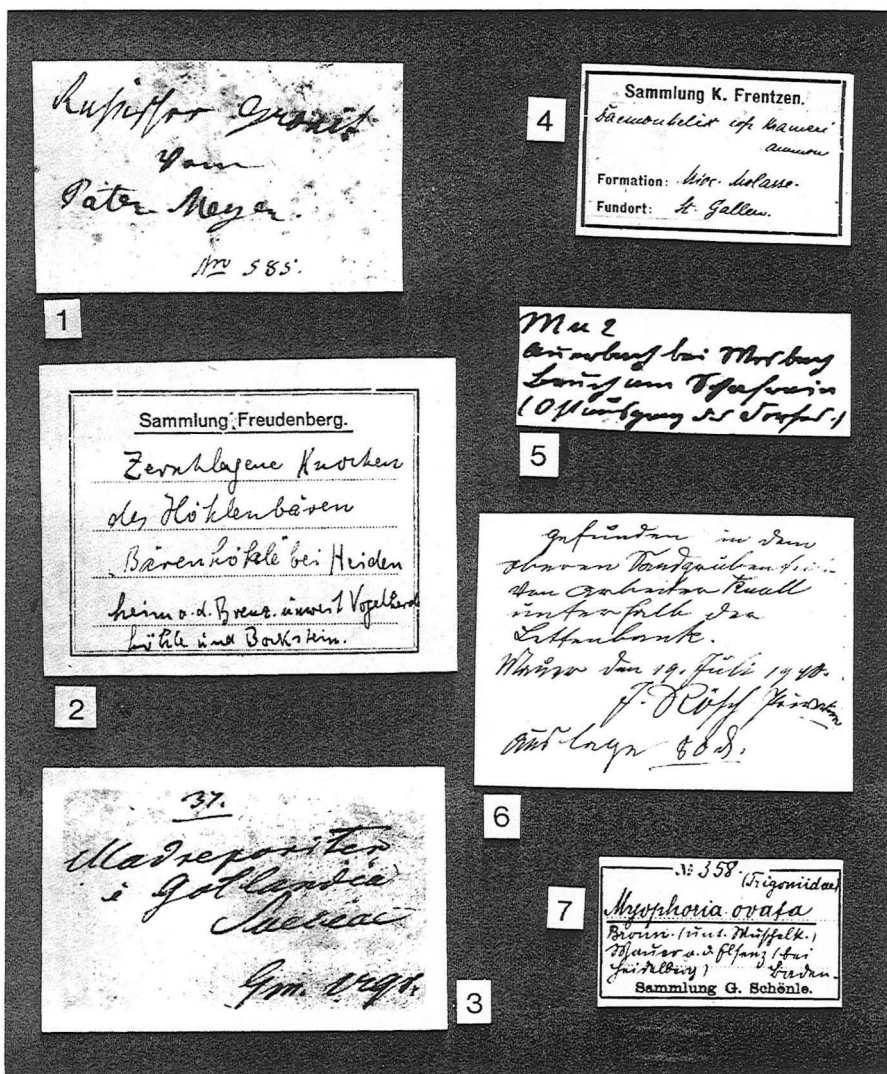 Russischer Granit
vom
Pater Meyer.
No 585.
1
Sammlung Freudenberg.
Zerschlagene Knochen
des Höhlenbären
Bärenhöhle bei Heiden
heim a. d. Brenz. unweit Vogelherd
höhle und Bockstein.
2
37.
Madreporiten
è Gotlandia
Sueciae
3
4
Sammlung K. Frentzen.
Daemonhelix cfr. Krameri
Ammon
Formation: Mioc. Molasse.
Fundort: St. Gallen.
Mu 2
Auerbach bei Mosbach
Bruch am Schafrain
(Ostausgang des Dorfes.)
5
gefunden in dem
oberen
von Arbeiter Knall
unterhalb der
Lettenbank.
Mauer den 19. Juli
J. Rösch
Auslage 80 d.
6
7
№ 358.
(Trigoniidae)
Myophoria ovata
Bronn. (unt. Muschelk.)
Mauer a. d. Elsenz (bei
Heidelberg) Baden.
Sammlung G. Schönle.